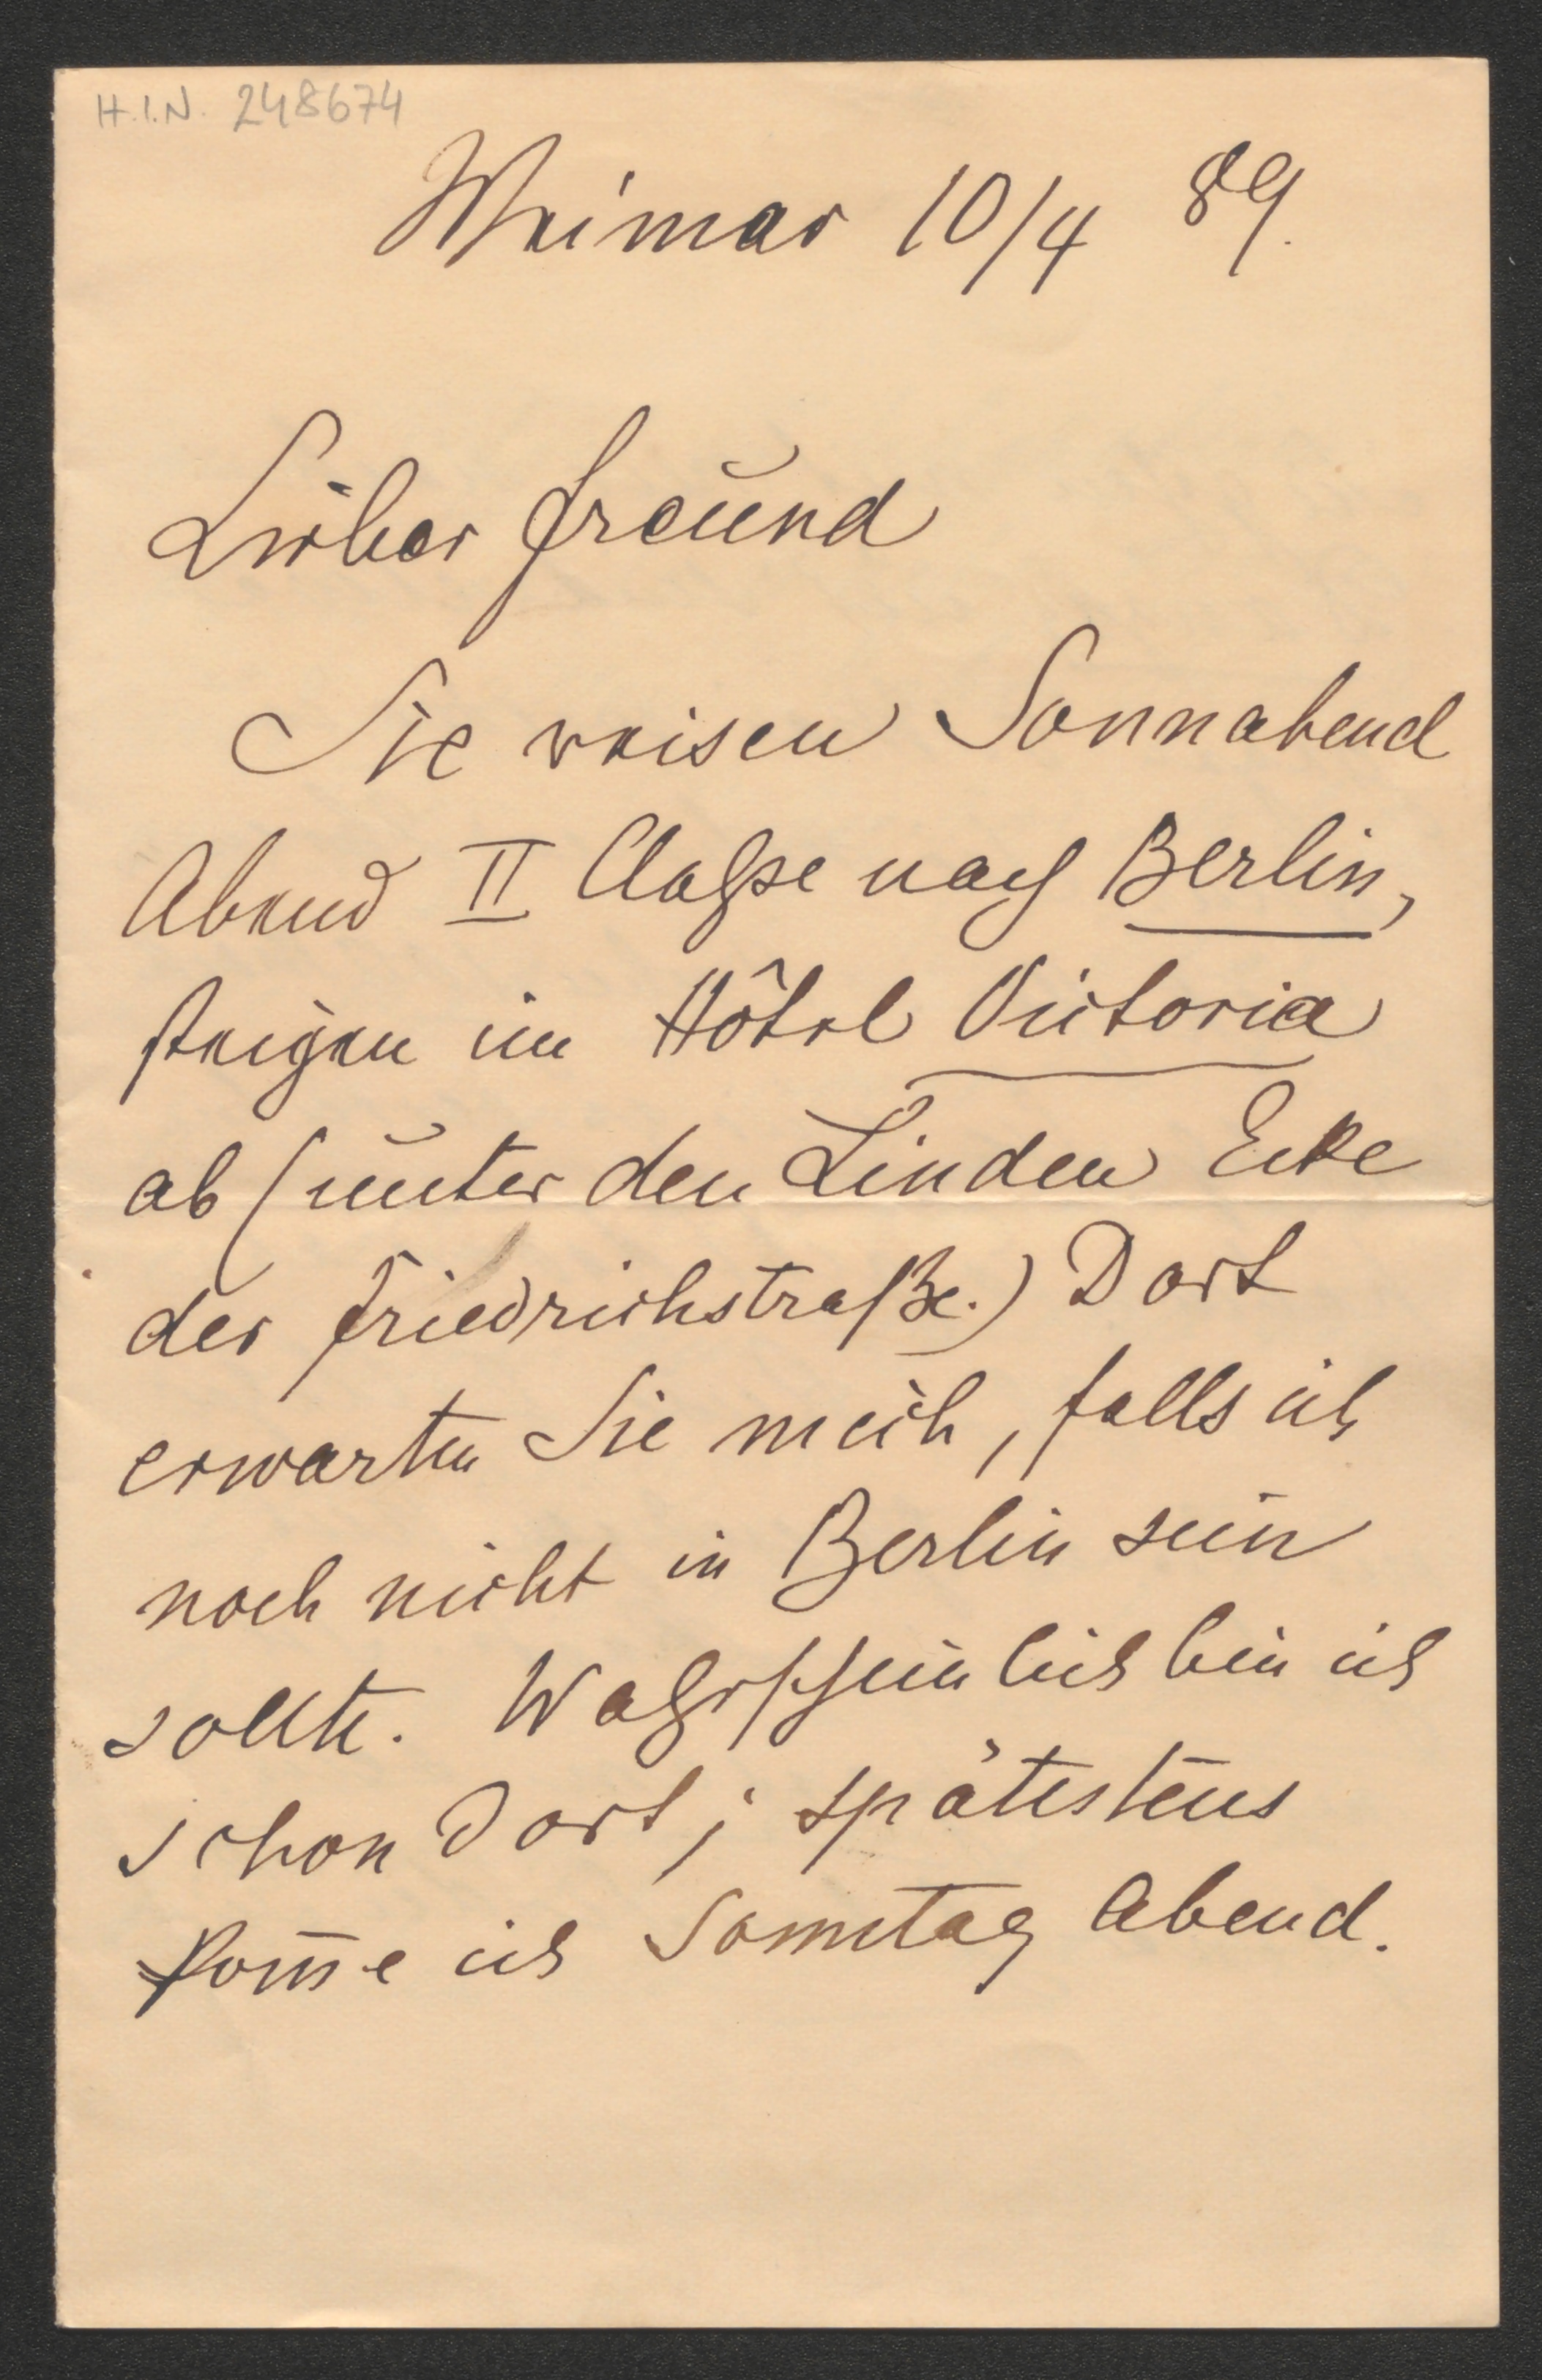 H.I.N. 248674
Weimar 10/4 89.
Lieber Freund
Sie reisen Sonnabend
Abend II Classe nach Berlin,
steigen im Hôtel Victoria
ab (unter den Linden Ecke
der Friedrichstraße.) Dort
erwarten Sie mich, falls ich
noch nicht in Berlin sein
sollte. Wahrscheinlich bin ich
schon dort; spätestens
kom̅e ich Sonntag Abend.